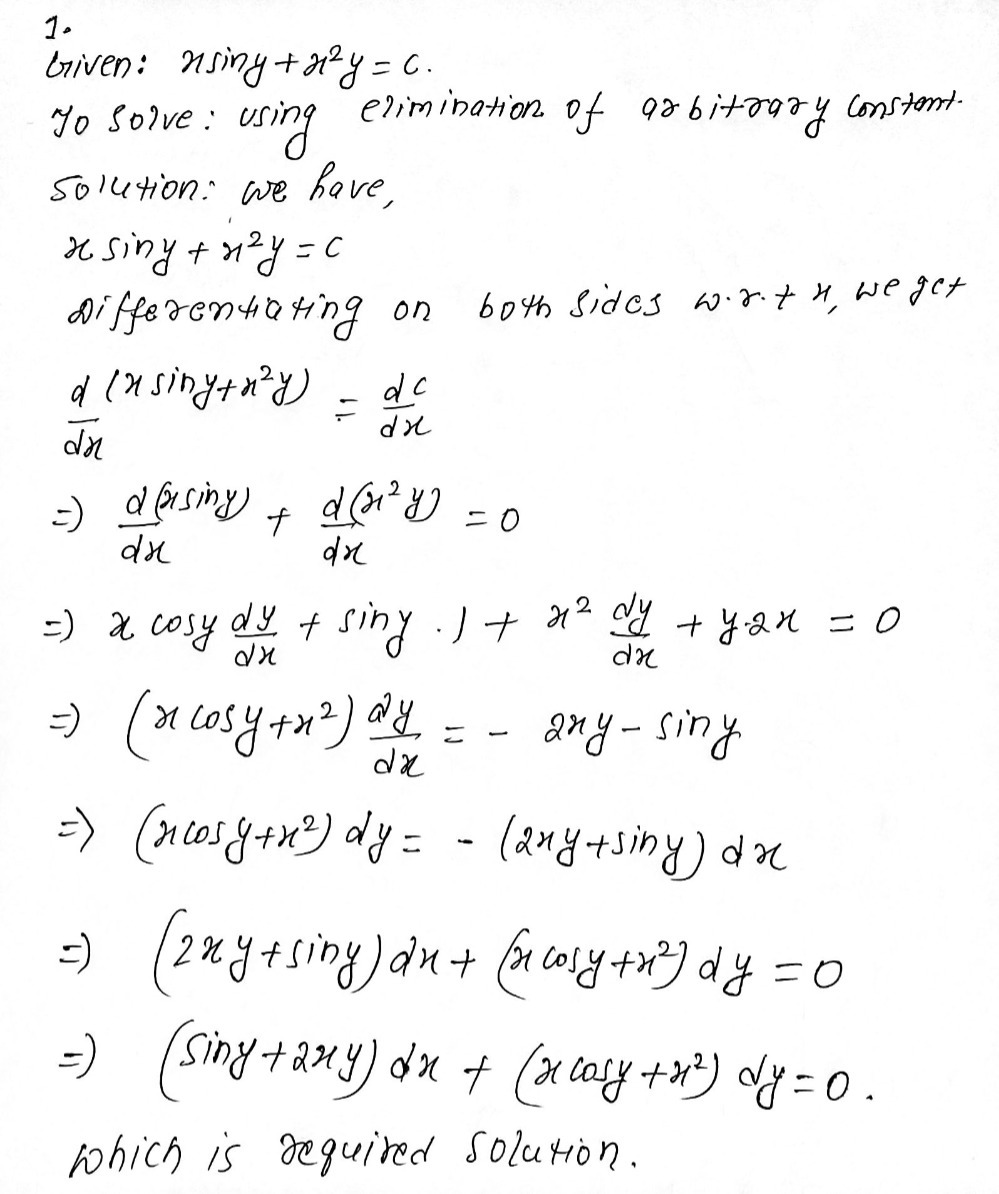 1.
Given: x sin y + x²y = c.
To solve: using elimination of arbitrary constant.
Solution: we have,
x sin y + x²y = c
Differentiating on both sides w.r.t x, we get
d/dx (x sin y + x²y) = dc/dx
=> d(x sin y)/dx + d(x²y)/dx = 0
=> x cos y dy/dx + sin y . 1 + x² dy/dx + y.2x = 0
=> (x cos y + x²) dy/dx = - 2xy - sin y
=> (x cos y + x²) dy = - (2xy + sin y) dx
=> (2xy + sin y) dx + (x cos y + x²) dy = 0
=> (sin y + 2xy) dx + (x cos y + x²) dy = 0.
which is required solution.